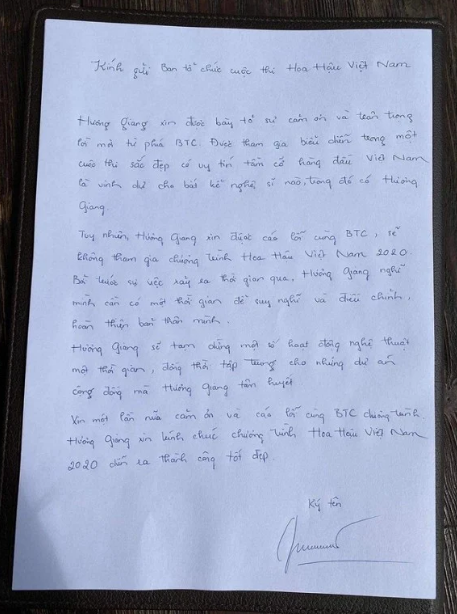 Kính gửi Ban tổ chức cuộc thi Hoa Hậu Việt Nam
Hương Giang xin được bày tỏ sự cảm ơn và trân trọng
lời mời từ phía BTC. Được tham gia biểu diễn trong một
cuộc thi sắc đẹp có uy tín tầm cỡ hàng đầu Việt Nam
là vinh dự cho bất kể nghệ sĩ nào, trong đó có Hương
Giang.
Tuy nhiên, Hương Giang xin được cáo lỗi cùng BTC, sẽ
không tham gia chương trình Hoa Hậu Việt Nam 2020.
Bởi trước sự việc xảy ra thời gian qua, Hương Giang nghĩ
mình cần có một thời gian để suy nghĩ và điều chỉnh,
hoàn thiện bản thân mình.
Hương Giang sẽ tạm dừng một số hoạt động nghệ thuật
một thời gian, đồng thời tập trung cho những dự án
cộng đồng mà Hương Giang tâm huyết
Xin một lần nữa cảm ơn và cáo lỗi cùng BTC chương trình.
Hương Giang xin kính chúc chương trình Hoa Hậu Việt Nam
2020 diễn ra thành công tốt đẹp.
Ký tên